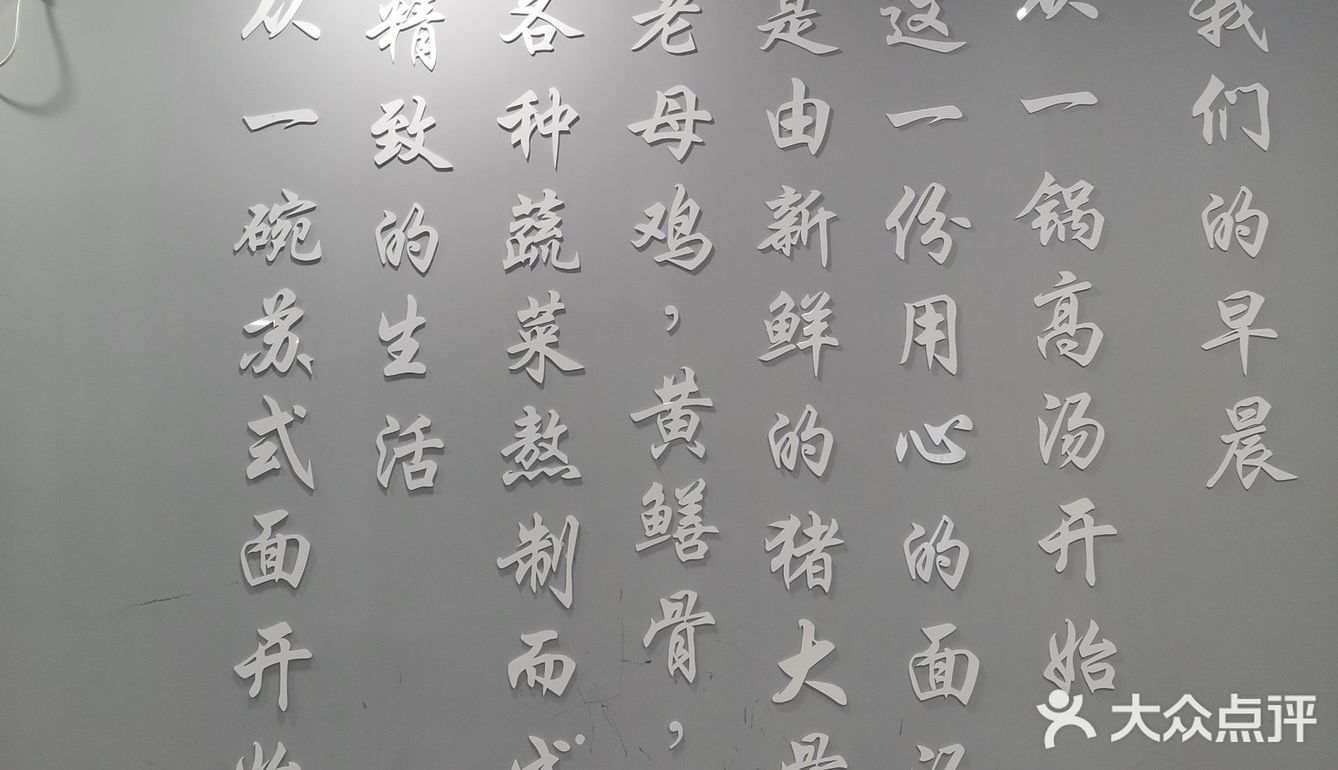 我们的早晨
从一锅高汤开始
这一份用心的面汤
是由新鲜的猪大骨
老母鸡，黄鳝骨，
各种蔬菜熬制而成
精致的生活
从一碗苏式面开始
大众点评